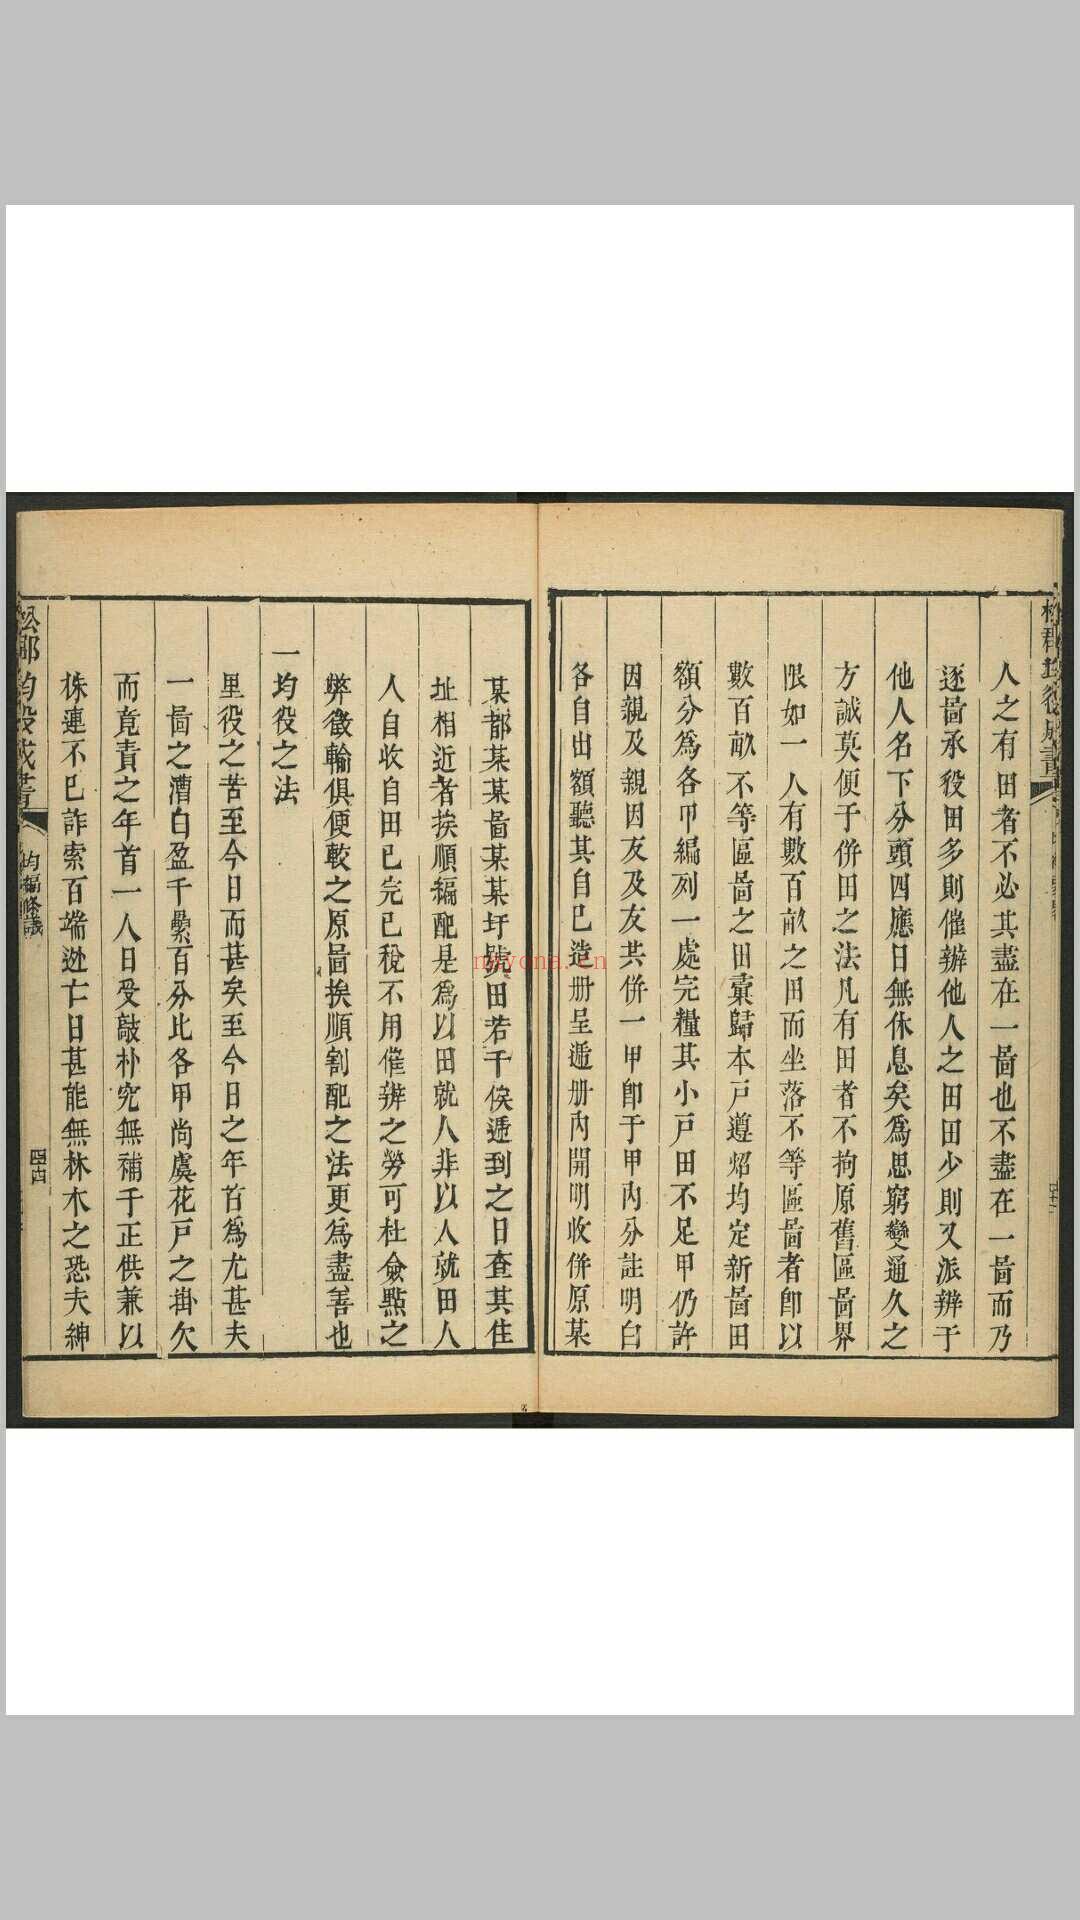 人之有田者不必其盡在一啚也不盡在一啚而乃
逐啚承役田多則催辦他人之田田少則又派辦于
他人名下分頭四應日無休息矣爲思窮變通久之
方誠莫便于併田之法凡有田者不拘原舊區啚界
限如一人有數百畝之田而坐落不等區啚者卽以
數百畝不等區啚之田彙歸本戸遵炤均定新啚田
額分爲各甲編列一處完糧其小戸田不足甲仍許
因親及親因友及友共併一甲卽于甲內分註明白
各自出額聽其自已造册呈遞册內開明收併原某
某都某某啚某某圩號田若干俟逓到之日查其住
址相近者挨順編配是爲以田就人非以人就田人
人自收自田已完已稅不用催辦之勞可杜僉點之
弊徵輸俱便較之原啚挨順割配之法更爲盡善也
一均役之法
里役之苦至今日而甚矣至今日之年首爲尤甚夫
一啚之漕白盈千纍百分比各甲尚虞花戸之掛欠
而竟責之年首一人日受敲朴究無補于正供兼以
株連不已詐索百端逃亡日甚能無林木之恐夫紳
松郡均役成書
均編條議
四十四
nayona.cn